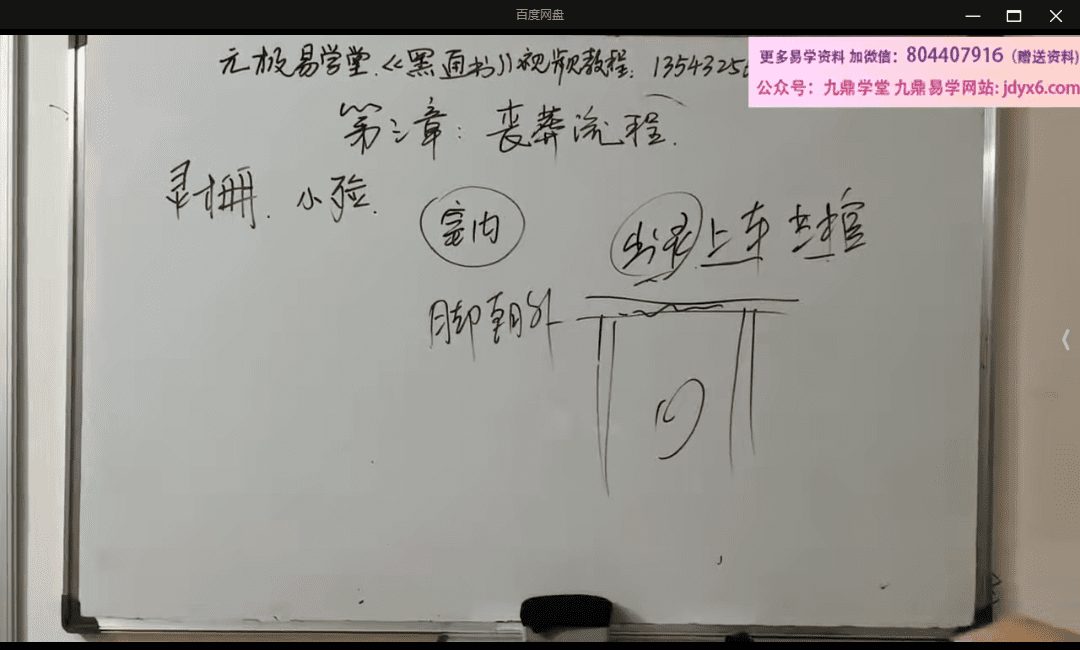 百度网盘
元极易学堂.《黑通书》视频教程: 1354325
更多易学资料 加微信: 804407916 (赠送资料)
公众号: 九鼎学堂 九鼎易学网站: jdyx6.com
第三章: 丧葬流程.
灵棚. 小殓.
室内
出灵 上车
脚朝外